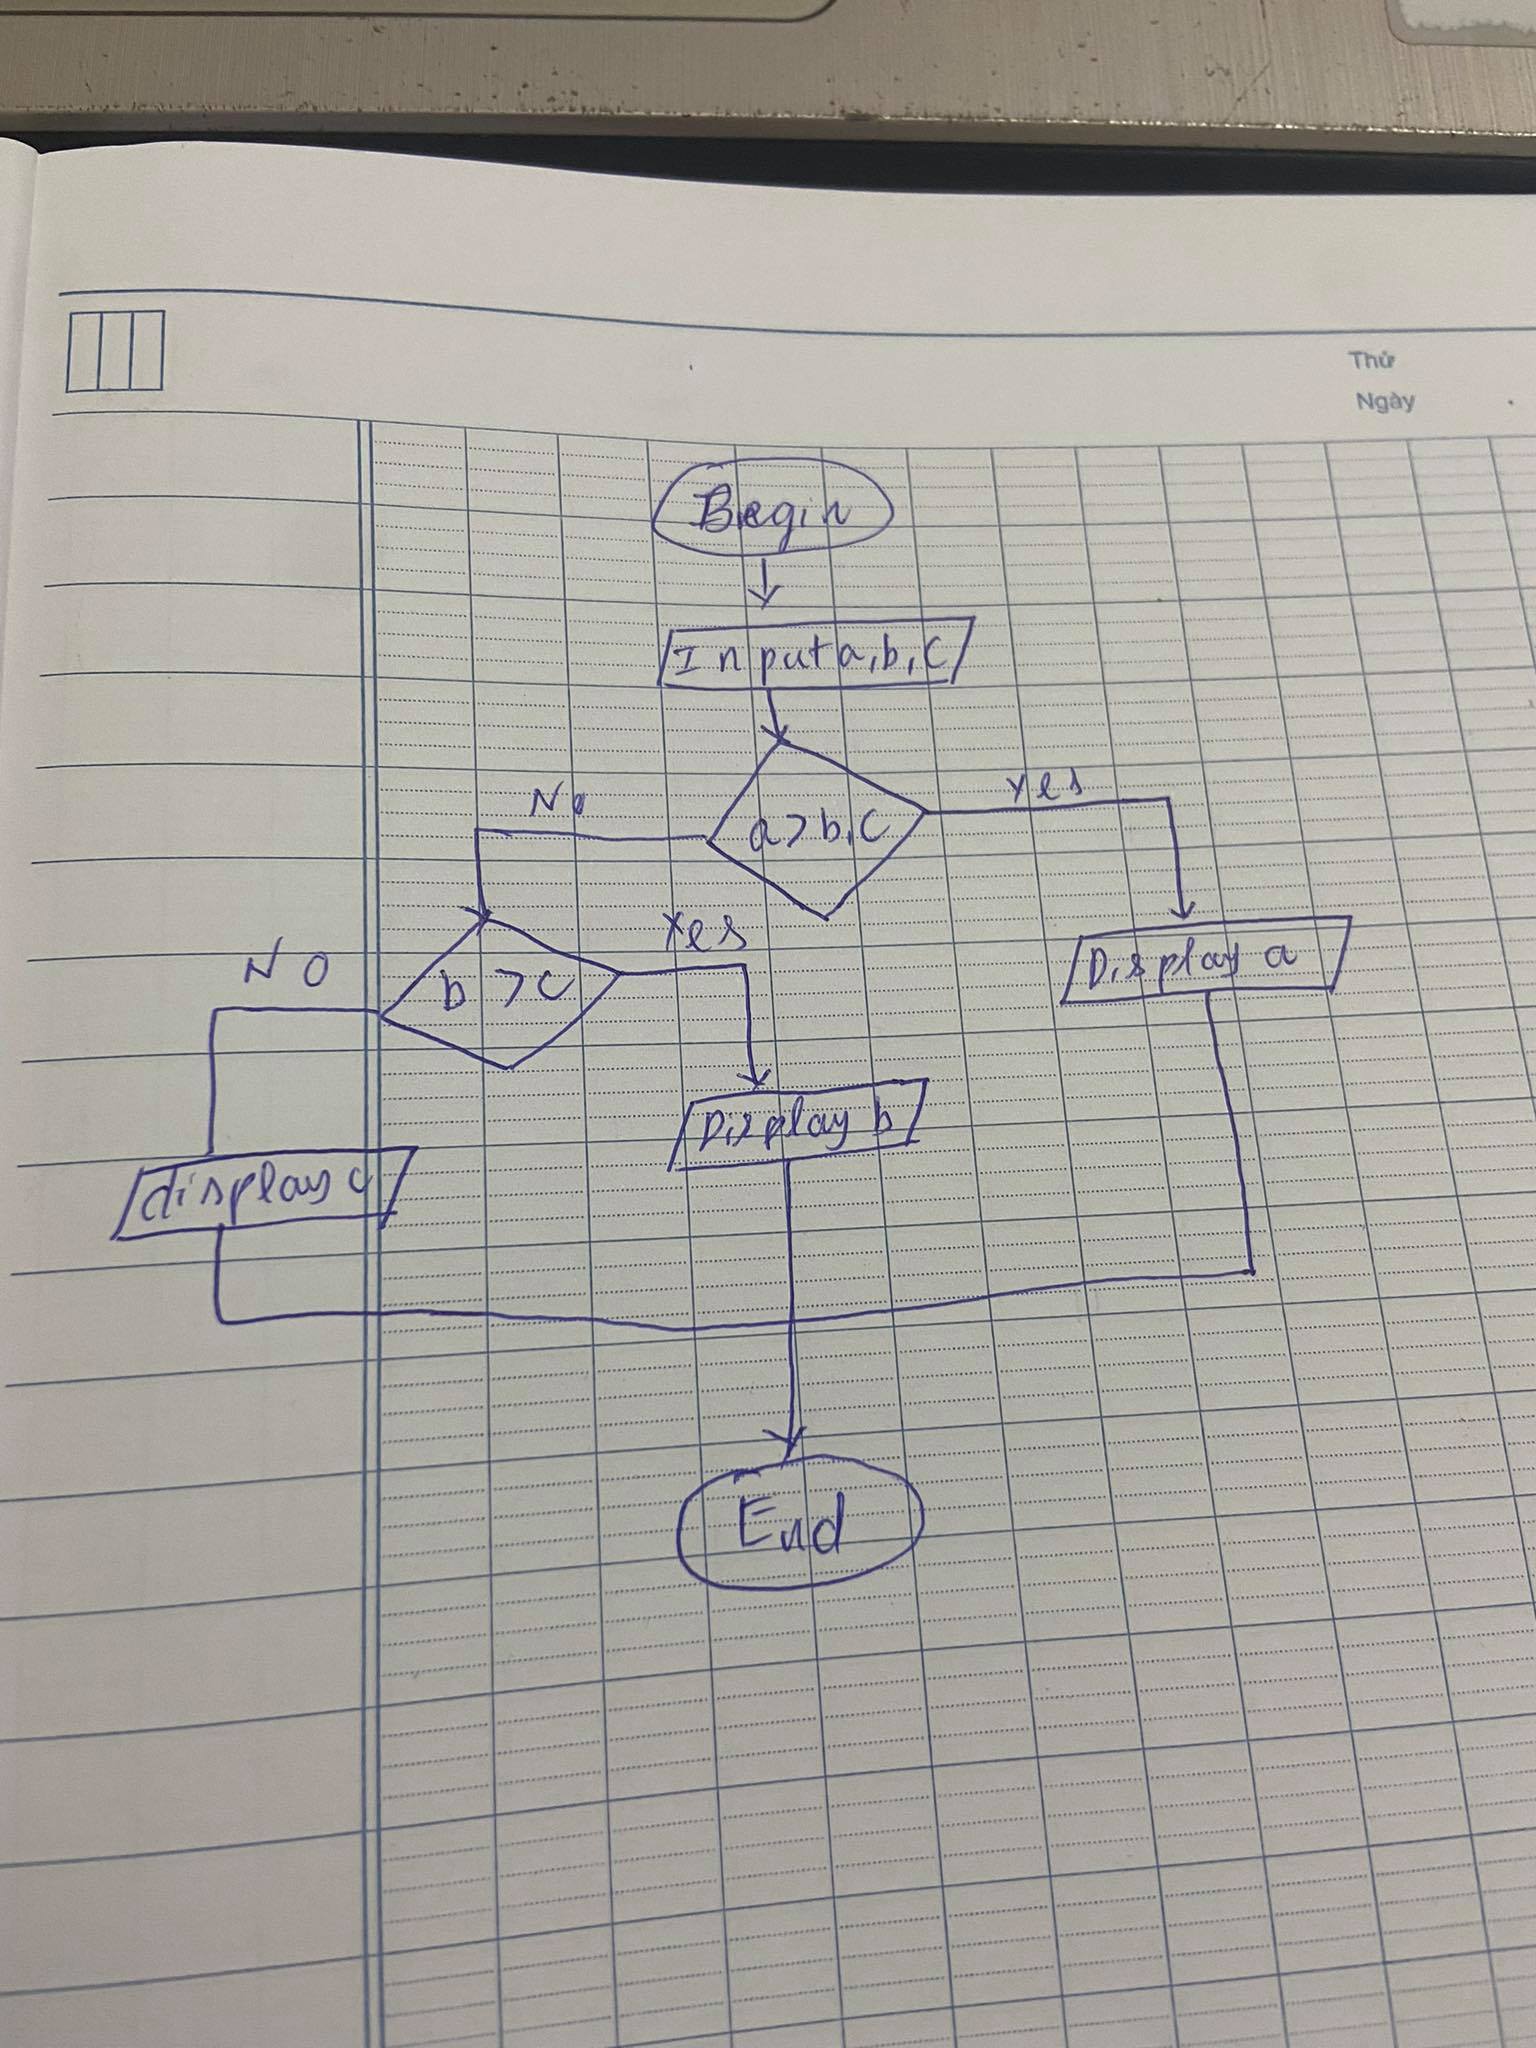 Thứ
Ngày
Begin
Input a, b, c
a > b, c
No
Yes
b > c
Yes
NO
Display a
Display b
display c
End